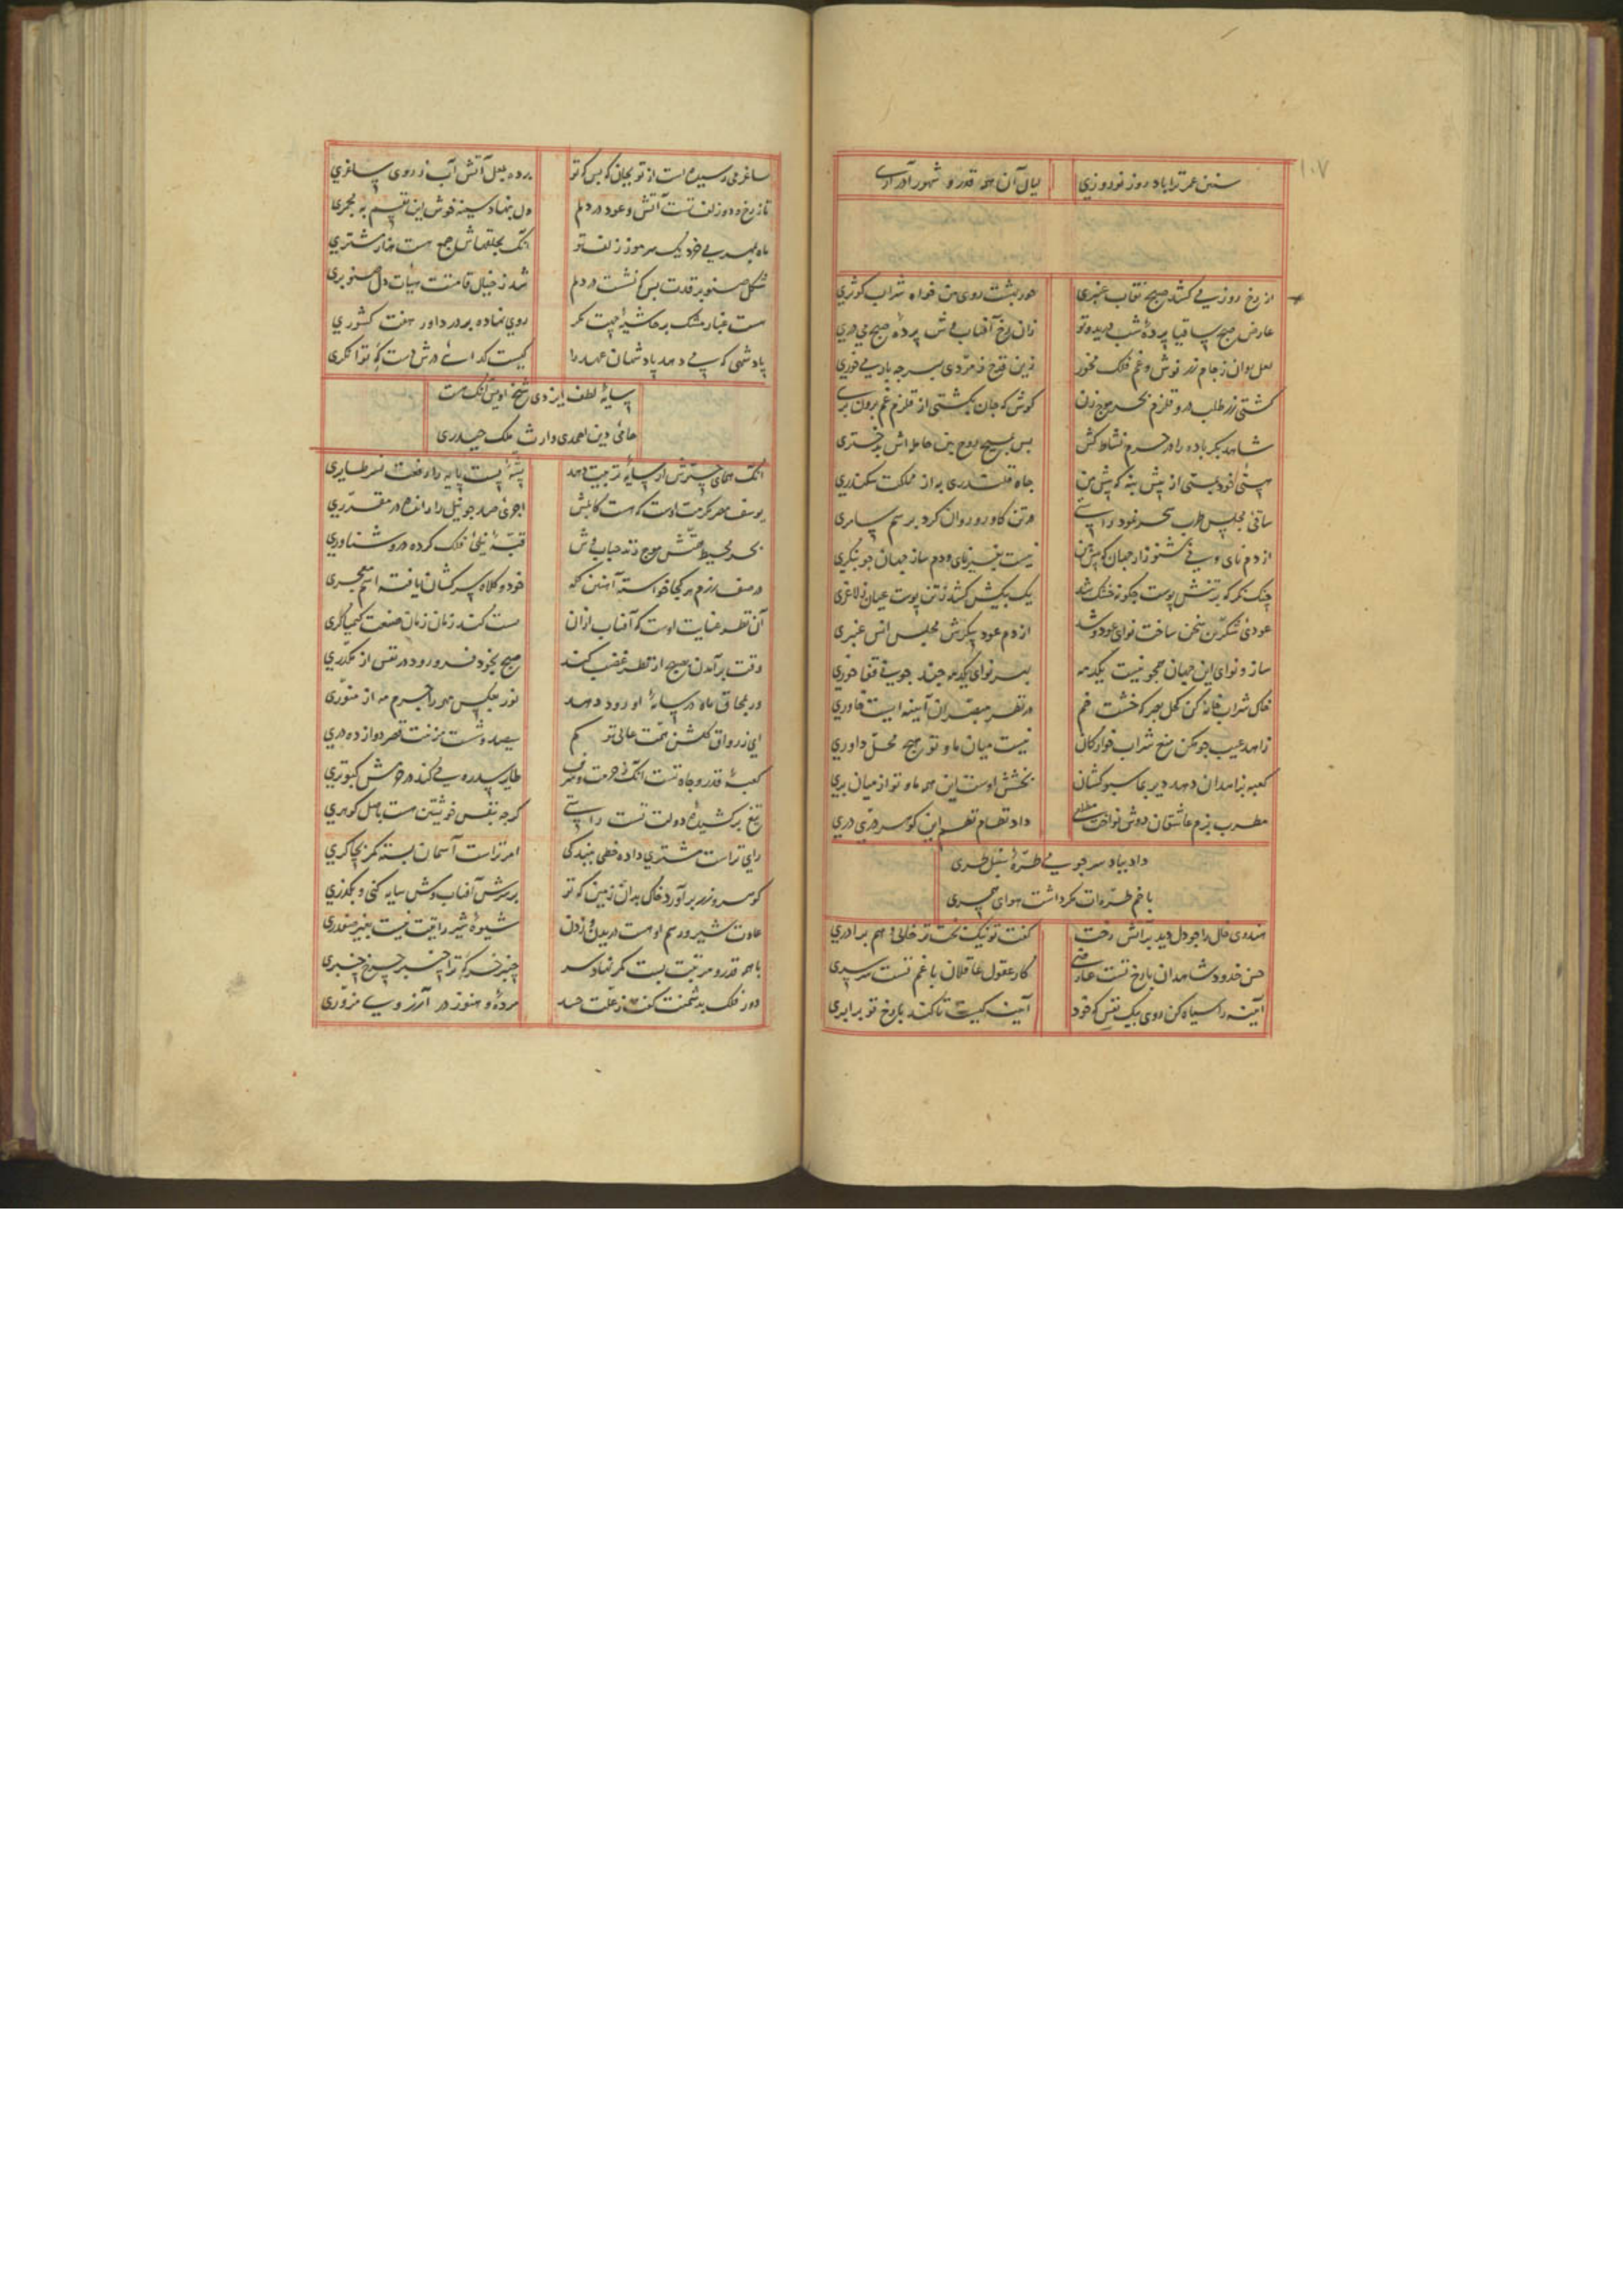 ۱۰۷
سنین عمر ترا باد روز نوروزی لیال آن همه قدر و شهور آذر آری
از رخ روز می کشد صبح نقاب عنبری حور بهشت روی من خواه شراب کوثری
عارض صبح ساقیا پردهٔ شب دریده تو زان رخ آفتاب وش پردهٔ صبح می دری
لعل روان ز جام زر نوش و غم فلک مخور زین قدح زمردی بهر چه باده می خوری
کشتی زر طلب درو قلزم بحر موج زن کوش که جان بکشتی از قلزم غم برون بری
شاهد بکر باده را در حرم نشاط کش بس مسیح روح بین حامله اش بدختری
هستی خود پرستی از پیش بنه که پیش من جاه قلندری به از مملکت سکندری
ساقی مجلس طرب سحر نمود راستی در تن کاو زر روان کرد برسم سامری
از دم نای و نی شنو راز جهان که پیش من نیست بغیر نای و دم ساز جهان چو بنگری
چنک نگر که بر تنش پوست چگونه خشک شد یک بیکش کشد ز تن پوست عیان ز لاغری
عودی شکرین سخن ساخت نوای عود و شد از دم عود پیکرش مجلس انس عنبری
ساز و نوای این جهان مجو نیست یکدمه بهر نوای یکدمه چند چو نی قفا خوری
خاک شراب خانه کن کحل بصر که خشت خم در نظر مبصران آینه ایست خاوری
زاهد عیب جو مکن منع شراب خوارکان نیست میان ما و تو هیچ محل داوری
کعبه بزاهدان دهد دیر بما سبو کشان بخشش اوست این همه ما و تو از میان بری
مطرب بزم عاشقان دوش نواخت مطلعی داد نظام نظم این گوهر دری دری
داد بباد سر چو می طرهٔ سنبل طری
با خم طره ات مگر داشت هوای همسری
هندوی خال را چو دل دید بر آتش رخت گفت تو نیک بخت تر خالی و هم برادری
حسن خدود شاهدان با رخ تست عارضی کار عقول عاقلان با غم تست سرسری
آینه را سیاه کن روی بیک نفس که خود آینه کیست تا کند با رخ تو برابری
ساغر می رسیده است از تو بجان که بس که تو برده بلعل آتش آب ز روی ساغری
تا ز رخ و دو زلف تست آتش و عود در دلم دل بنهاد سینه خوش این تقسم به مجمری
ماه بمهر می خرد یک سر مو ز زلف تو آنک بحلقهاش جمع است هزار مشتری
شکل صنوبر قدت بس که نشست در دلم شد ز خیال قامتت هیأت دل صنوبری
هست غبار مشک بر حاشیهٔ رخت مگر روی نهاده بر در داور هفت کشوری
پادشهی که می دهد پادشهان عهد را کیست گدای درش دست که توانگری
سایهٔ لطف ایزدی شیخ اویس آنک هست
حامی دین احمدی وارث ملک حیدری
آنک همای چترش ار سایهٔ تربیت دهد پشهٔ پست پایه را رفعت نسر طایری
یوسف مصر مکرمت اوست که هست کامش اجری صد چو نیل را راتبه مقرری
بحر محیط همتش موج زند حباب وش قبهٔ نیلی فلک کرده درو شناوری
در صف رزم هر کجا خواسته آهنین کله خود و کلاه سرکشان یافته اسم معجری
آن نظر عنایت اوست که آفتاب ازان مست کند زمان زمان صنعت کیمیاگری
وقت برآمدن صبح ار نظر غضب کند صبح بخود فرو رود در نفس از مکدری
در محاق ماه در سایهٔ او رود دهد نور بعکس مهر را جرم مه از منوری
ای ز رواق گلشن همت عالی تو کم سیصد و شصت منزلت قصر دوازده دری
کعبهٔ قدر و جاه تست آنک ز حرمت و شرف طایر سدره می کند در حرمش کبوتری
تیغ برکشیدهٔ دولت تست راستی گرچه بنفس خویشتن هست باصل گوهری
رای تراست مشتری داده خطی ببندگی امر تراست آسمان بسته کمر بچاکری
گوهر و زر برآورد خاک بدان زمین که تو بر سرش آفتاب وش سایه کنی و بگذری
عادت شیر و رسم او هست دریدن و زدن شیوهٔ شیر رایتت نیست بغیر صفدری
با همه قدر و مرتبت بست کمر نهاد سر چنبر خرکه ترا چنبر چرخ چنبری
دور فلک بدشمنت گفت ز علت حسد مردهٔ و هنوز در آرزوی مزوری